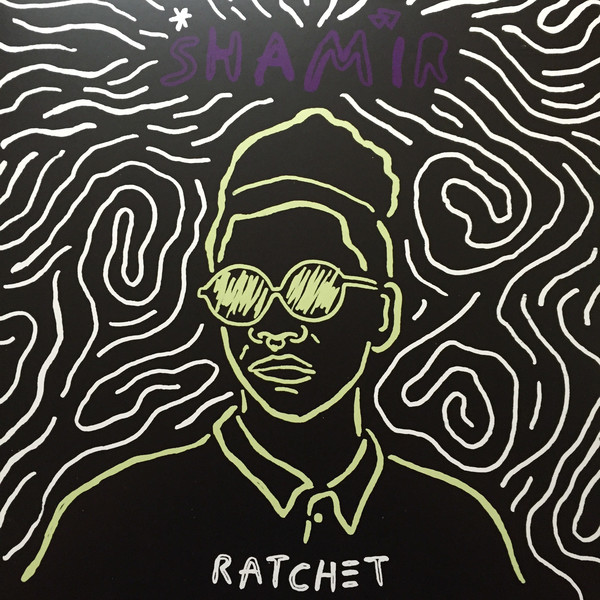 SHAMIR
RATCHET